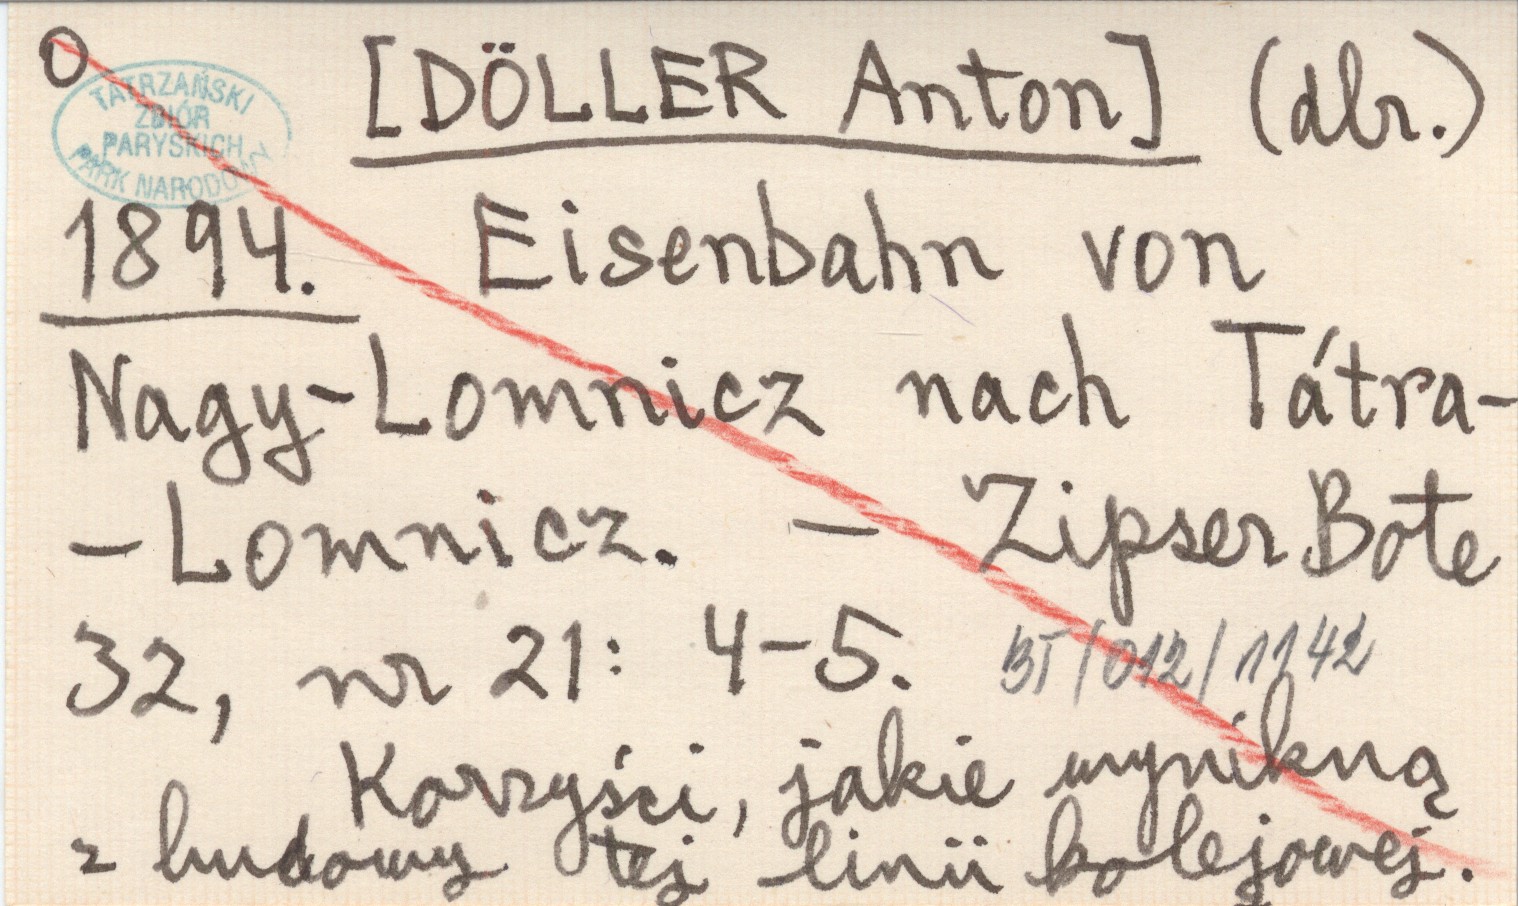 O [DÖLLER Anton] (dbr.)
TATRZAŃSKI
ZBIÓR
PARYSKICH
PARK NARODOWY
1894. Eisenbahn von
Nagy-Lomnicz nach Tátra-
-Lomnicz. — Zipser Bote
32, nr 21: 4-5. BT/012/1142
Korzyści, jakie wynikną
z budowy tej linii kolejowej.